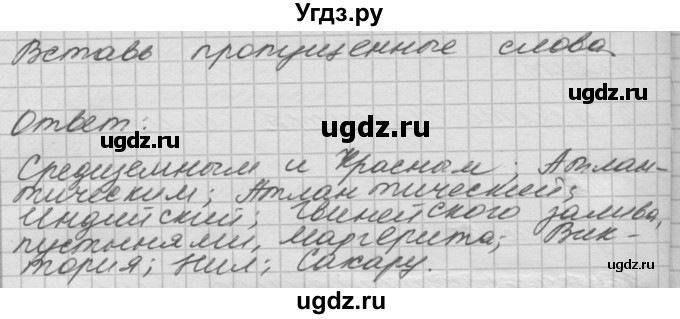 Угдз.ру
Вставь пропущенные слова
ugdz.ru
ugdz.ru
Ответ: ugdz.ru
ugdz.ru
Средиземным и Красным; Атлан-
тическим; Атлантический;
Индийский; Гвинейского залива,
пустынями, Маргерита; Вик-
тория; Нил; Сахару.
ugdz.ru
ugdz.ru
ugdz.ru
ugdz.ru